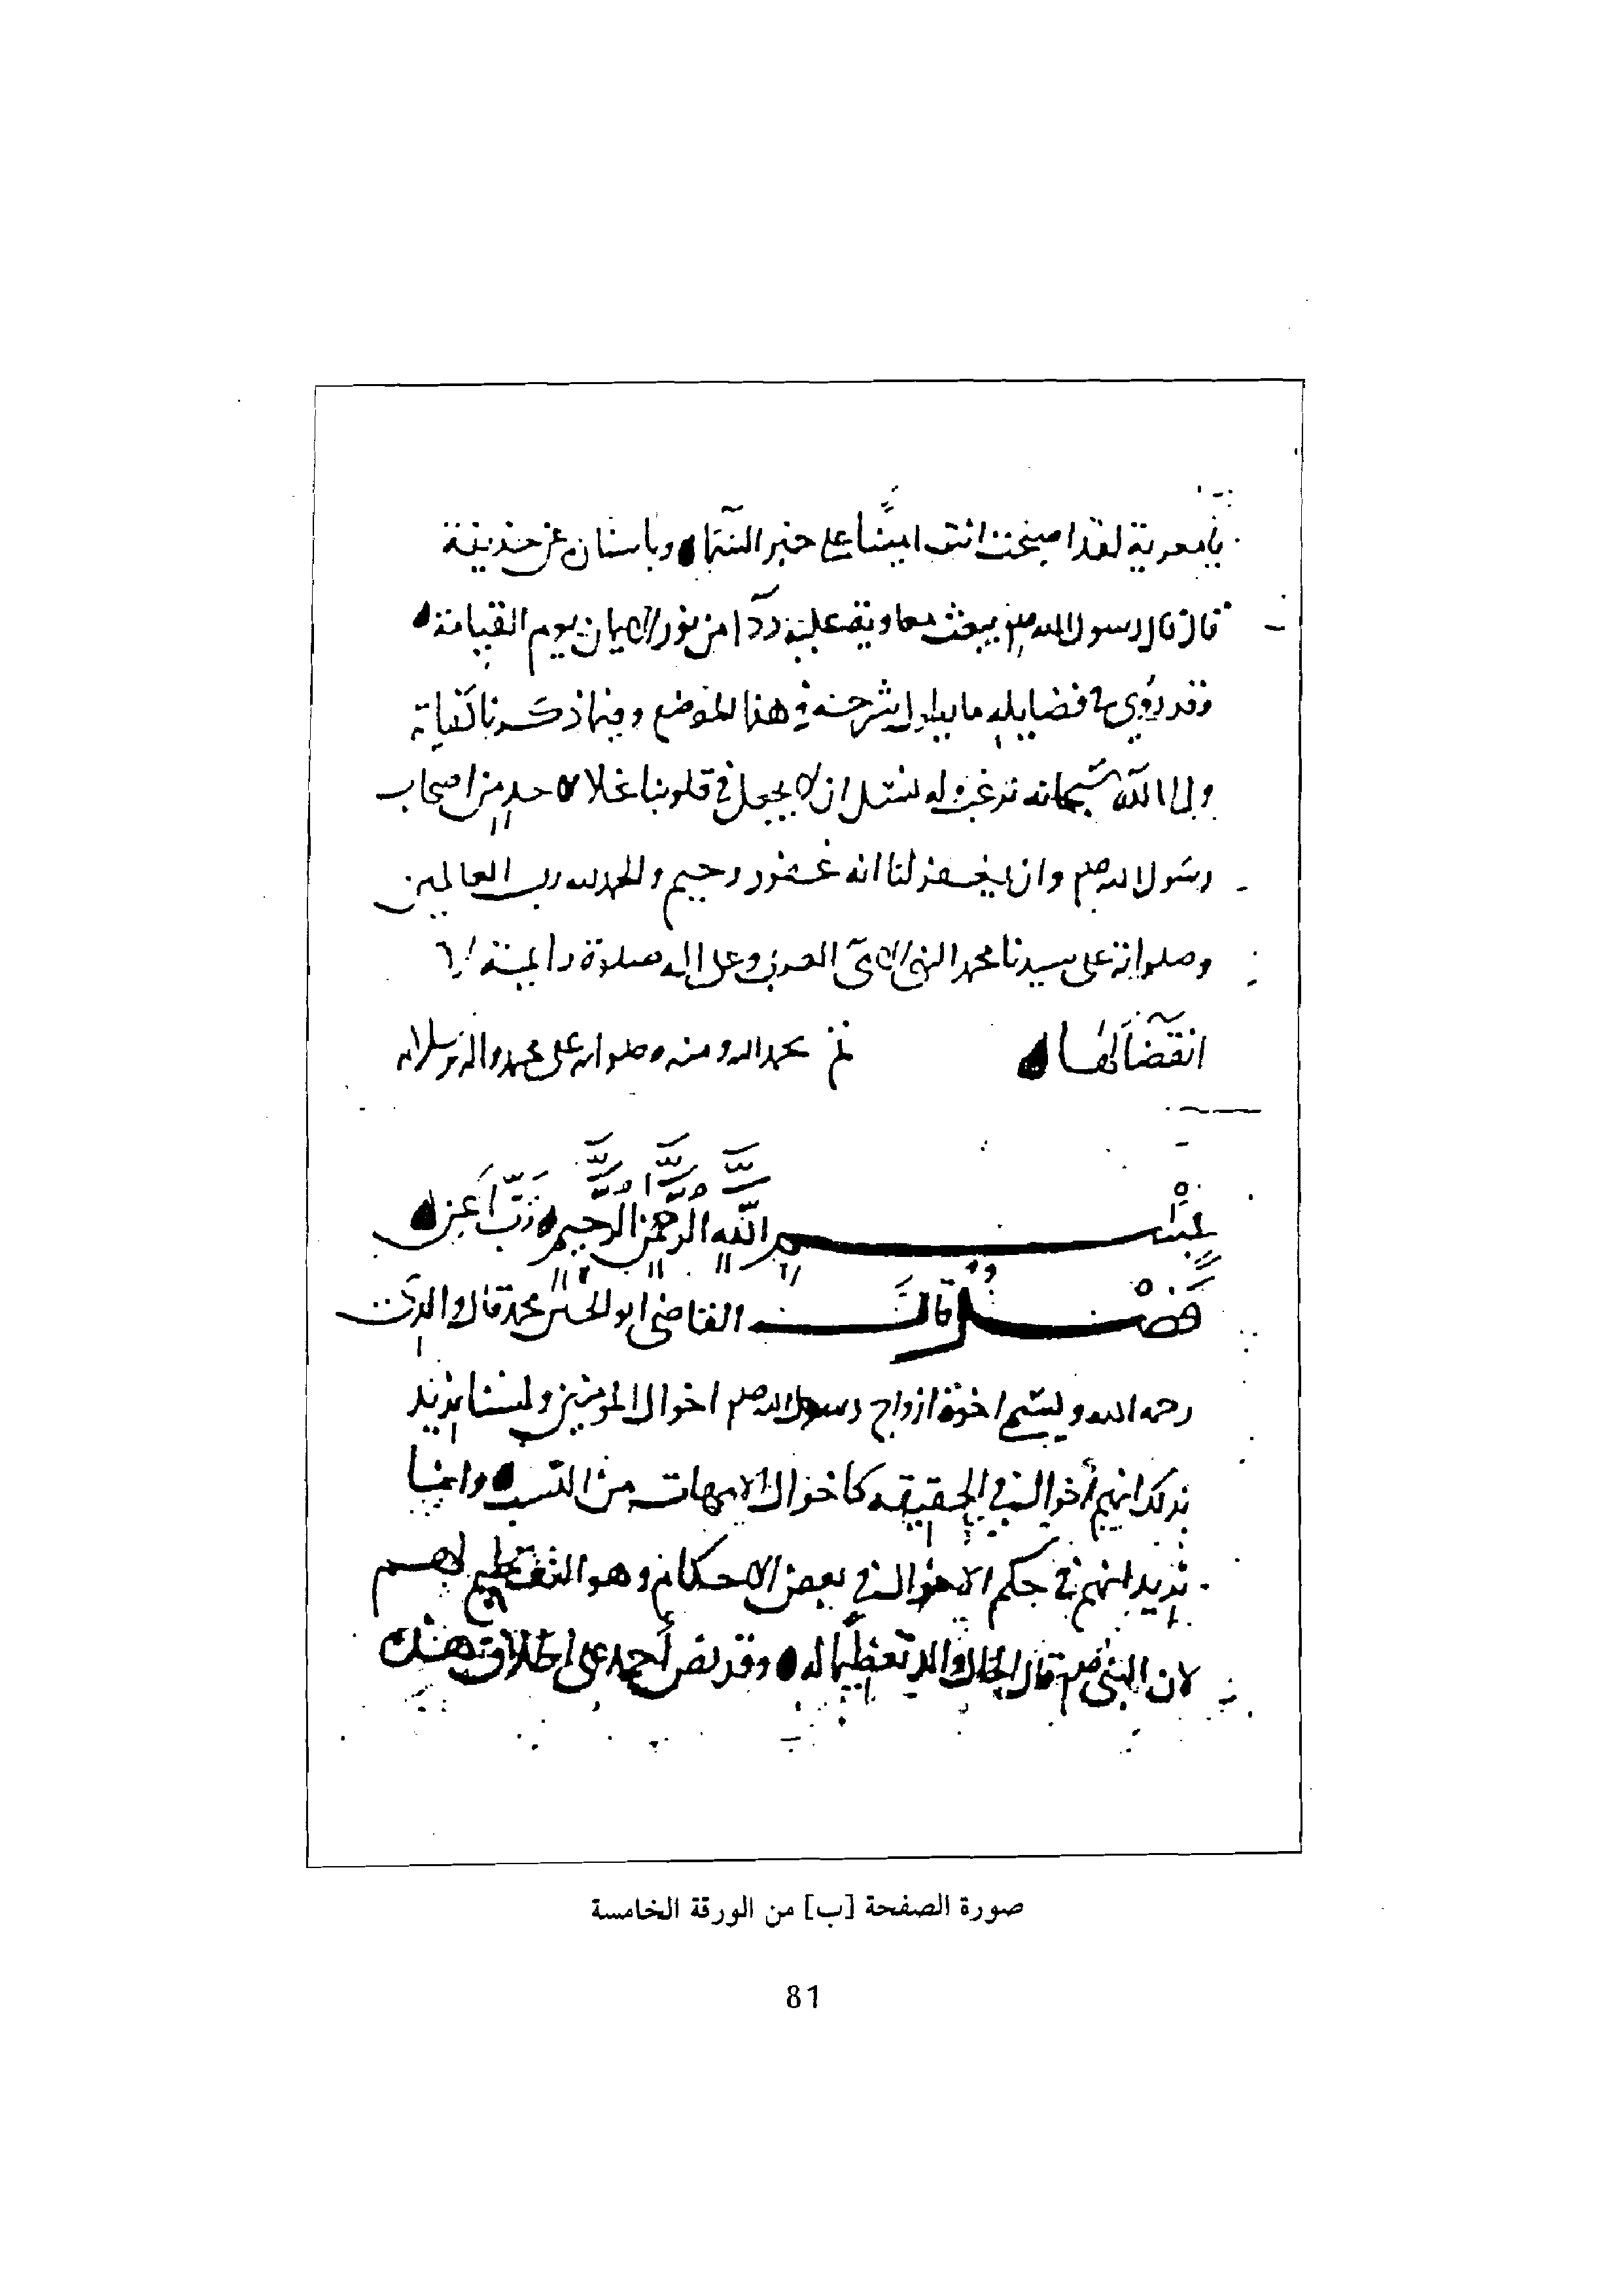 يا معوية لقد اصبحت انت امينا على خبر السماء وباسناده عن حذيفة
قال قال رسول الله صلم يبعث معاوية عليه ردآ من نور الايمان يوم القيامة
وقد روي في فضايله ما يطول شرحه في هذا الموضع وفيما ذكرنا كفاية
والى الله سبحانه نرغب وله نسئل ان لا يجعل في قلوبنا غلا لاحد من اصحاب
رسول الله صلم وان يغفر لنا انه غفور رحيم والحمد لله رب العالمين
وصلواته على سيدنا محمد النبي الامي العربي وعلى اله صلوة دايمة لا
انقضآ لها تم بحمد الله ومنه وصلواته على محمد واله وسلامه
بسم الله الرحمن الرحيم رب اعن
فصل قال القاضي ابو الحسين محمد قال والدي
رحمه الله ويسمى اخوة ازواج رسول الله صلم اخوال المومنين ولسنا نريد
بذلك انهم أخوال في الحقيقه كاخوال الامهات من النسب وانما
نريد انهم في حكم الاخوال في بعض الاحكام وهو التعظيم لهم
لان النبي صلم قال الخال والد تعظيما له وقد نص أحمد على اطلاق هذه
صورة الصفحة [ب] من الورقة الخامسة
81